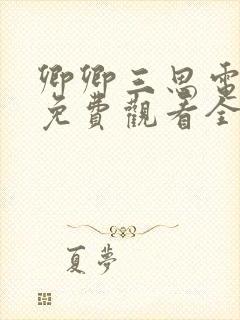 卿卿三思電
免費觀看全
夏夢